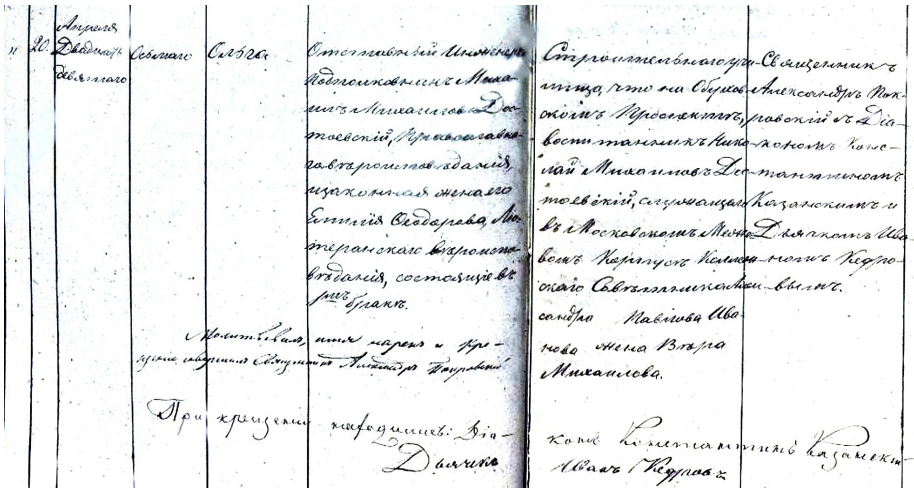 Апреля
" 20. Двадцать
девятаго
Осьмаго
Ольга
Отставный Инженеръ
Подполковникъ Миха-
илъ Михаиловъ Дос-
тоевскій, Православна-
го вѣроисповѣданія,
и законная жена его
Емилія Ѳеодорова, Лю-
теранскаго вѣроиспо-
вѣданія, состоящіе въ
1мъ бракѣ.
Строительнаго учи-
лища, что на Обухов-
скомъ Проспектѣ,
воспитанникъ Нико-
лай Михаиловъ Дос-
тоевскій, служащаго
въ Московскомъ Меже-
вомъ Корпусѣ Коллеж-
скаго Совѣтника Алек-
сандра Павлова Ива-
нова жена Вѣра
Михаилова.
Священникъ
Александръ Пок-
ровскій съ Діа-
кономъ Конс-
тантиномъ
Казанскимъ и
Дьячкомъ Ива-
номъ Кедро-
вымъ.
Молитвовалъ, имя нарекъ и Кре-
щеніе совершилъ Священникъ Александръ Покровскій
При крещеніи находились: Діа-
конъ Константинъ Казанскій
Дьячекъ Иванъ Кедровъ